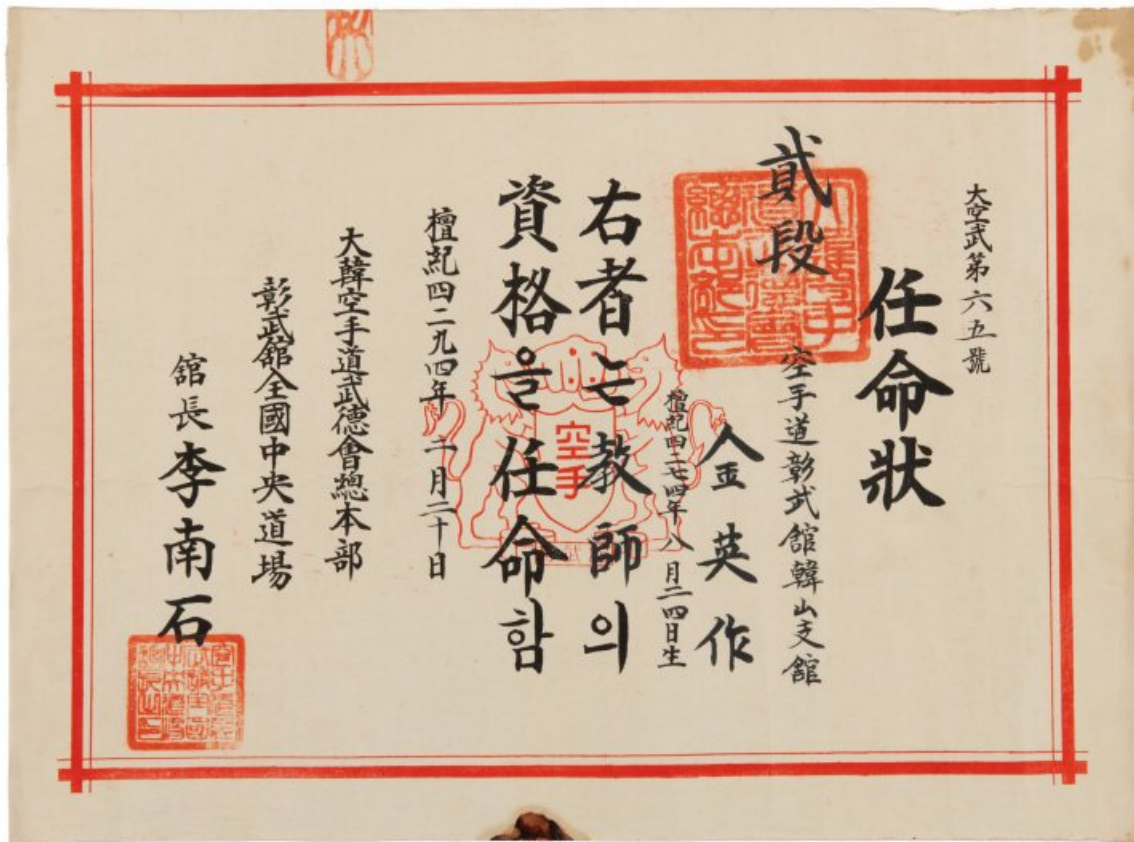 大空武第六五號
任命狀
空手道彰武舘韓山支舘
貳段 金英作
檀紀四二七四年八月二四日生
右者는敎師의
資格을任命함
檀紀四二九四年二月二十日
大韓空手道武德會總本部
彰武舘全國中央道場
舘長李南石
空手